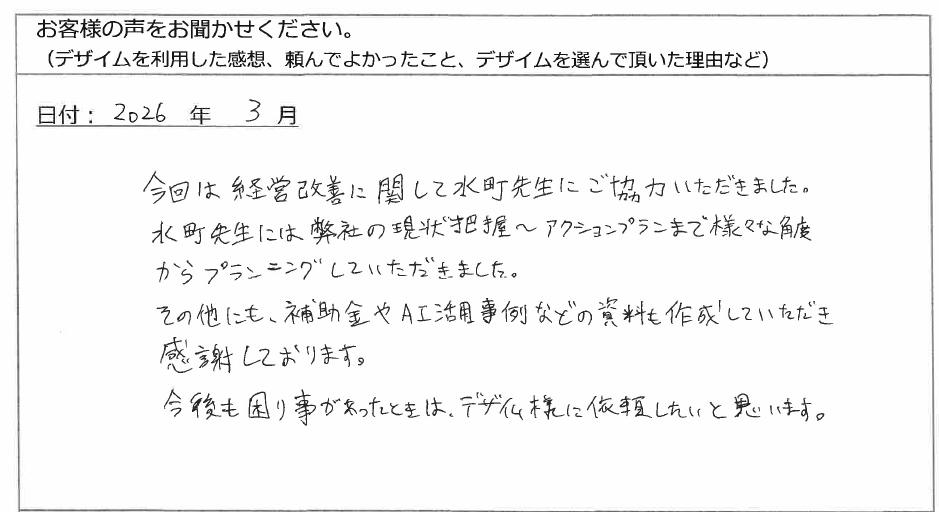 お客様の声をお聞かせください。
（デザイムを利用した感想、頼んでよかったこと、デザイムを選んで頂いた理由など）
日付： 2026 年 3 月
今回は経営改善に関して水町先生にご協力いただきました。
水町先生には弊社の現状把握～アクションプランまで様々な角度
からプランニングしていただきました。
その他にも、補助金やAI活用事例などの資料も作成していただき
感謝しております。
今後も困り事があったときは、デザイム様に依頼したいと思います。